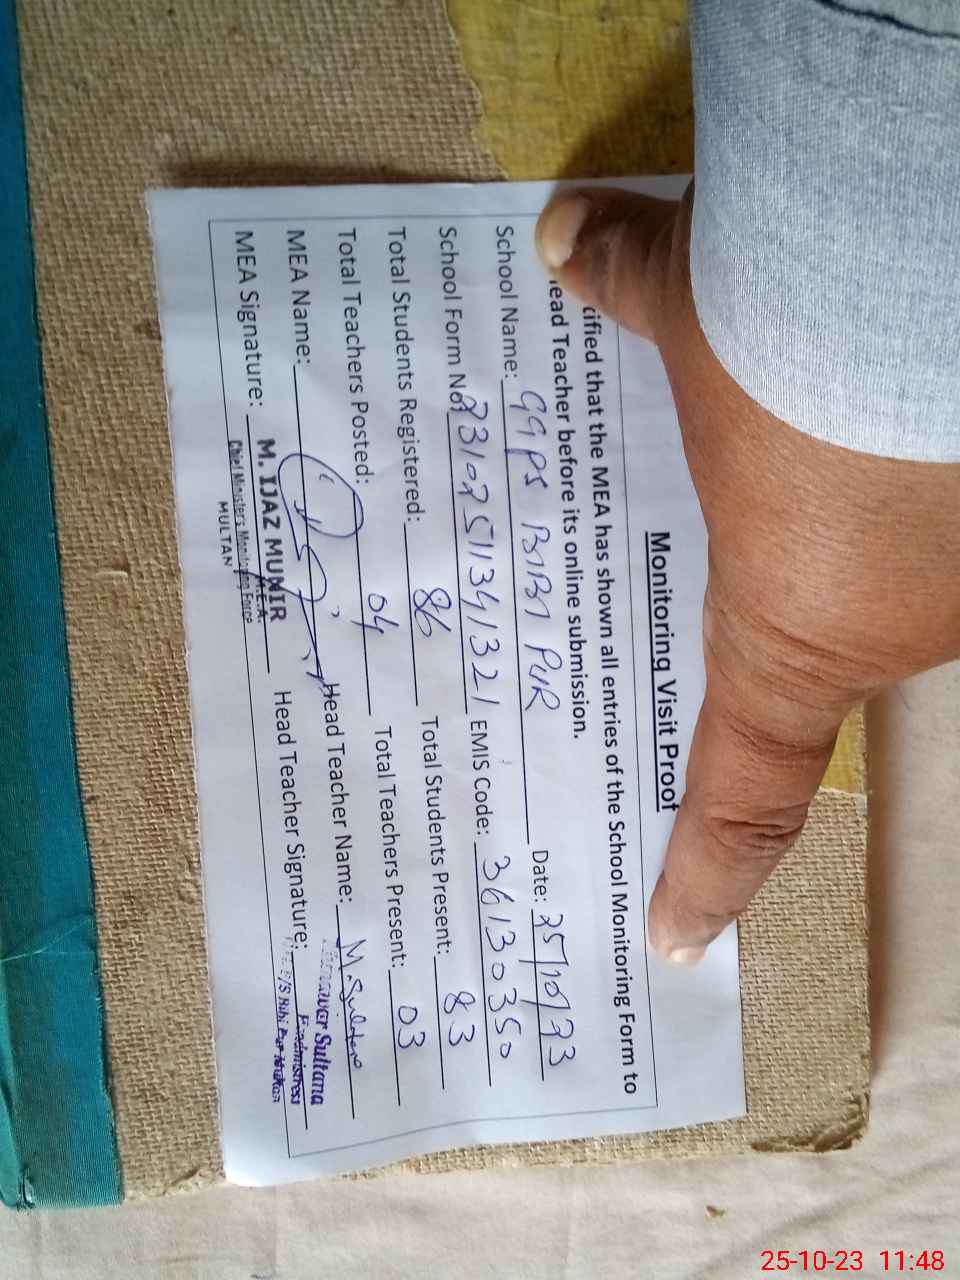 Monitoring Visit Proof
tified that the MEA has shown all entries of the School Monitoring Form to
lead Teacher before its online submission.
School Name: GGPS BIBI PUR Date: 25/10/23
School Form No: 23102511341321 EMIS Code: 36130350
Total Students Registered: 86 Total Students Present: 83
Total Teachers Posted: 04 Total Teachers Present: 03
MEA Name: Head Teacher Name: M. Sultana
MEA Signature: Head Teacher Signature:
M. IJAZ MUNIR
M.E.A.
Chief Minister's Monitoring Force
MULTAN
Sultana
Headmistress
Bibi Pur Multan
25-10-23 11:48